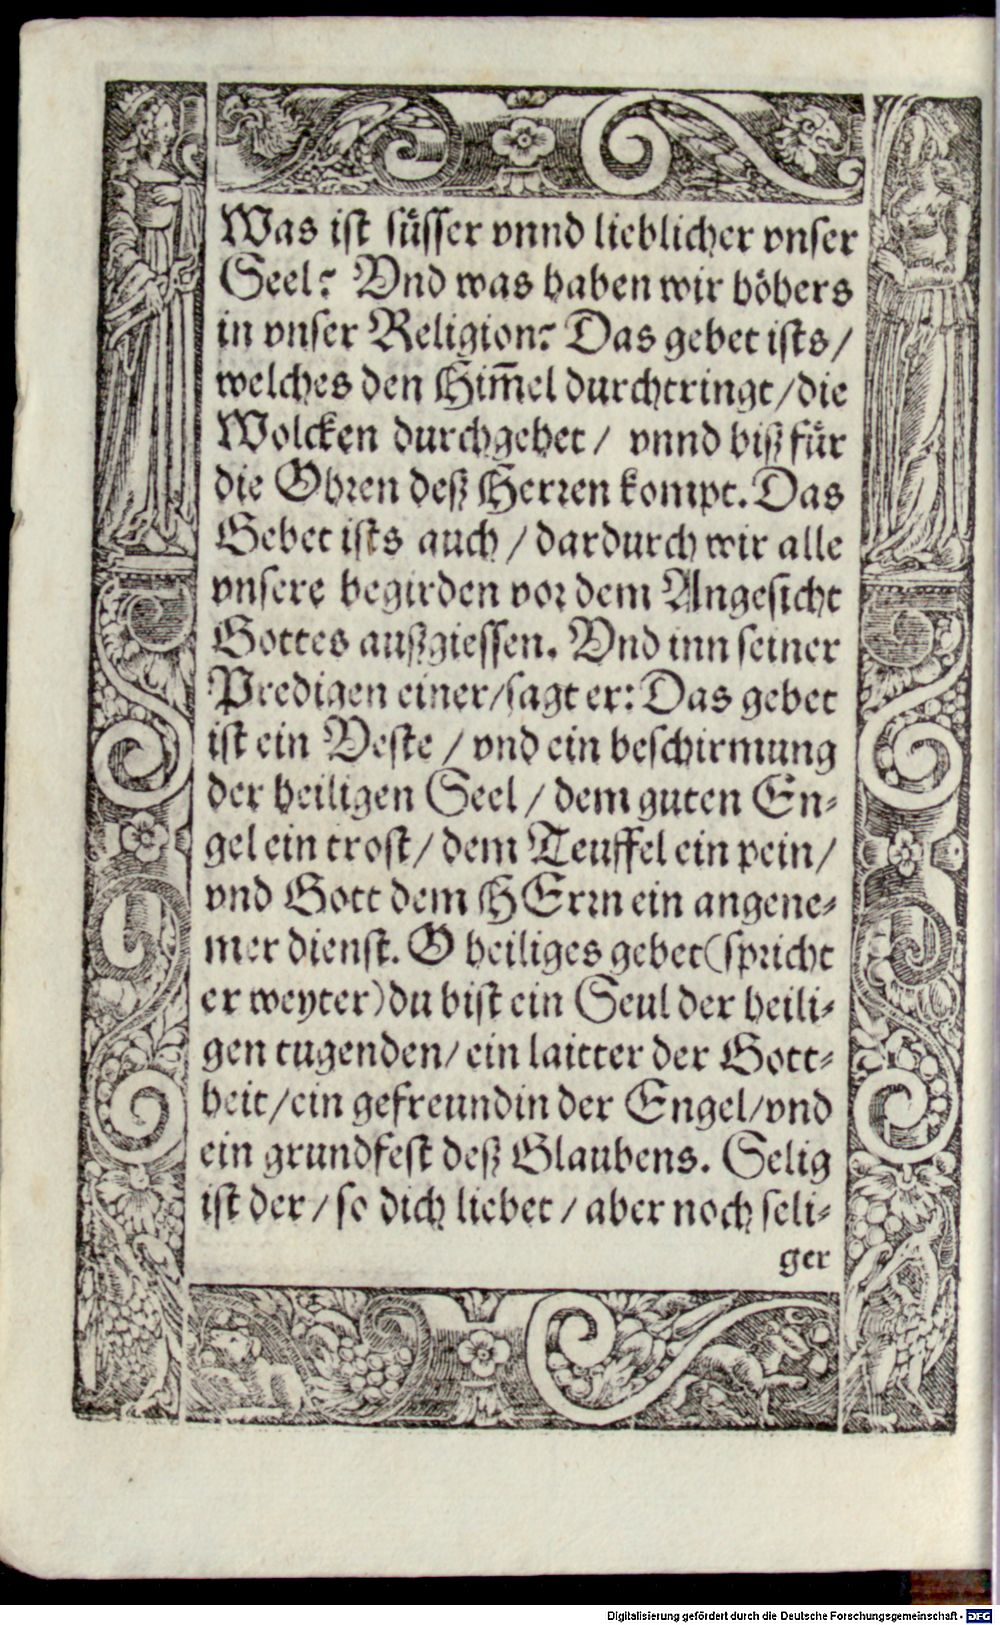 Was ist süsser vnnd lieblicher vnser
Seel? Vnd was haben wir höhers
in vnser Religion? Das gebet ists/
welches den Him̄el durchtringt/die
Wolcken durchgehet/ vnnd biß für
die Ohren deß Herren kompt. Das
Gebet ists auch / dardurch wir alle
vnsere begirden vor dem Angesicht
Gottes außgiessen. Vnd inn seiner
Predigen einer/sagt er: Das gebet
ist ein Veste / vnd ein beschirmung
der heiligen Seel / dem guten En-
gel ein trost/ dem Teuffel ein pein/
vnd Gott dem HErrn ein angene-
mer dienst. O heiliges gebet(spricht
er weyter)du bist ein Seul der heili-
gen tugenden/ ein laitter der Gott-
heit/ein gefreundin der Engel/vnd
ein grundfest deß Glaubens. Selig
ist der / so dich liebet / aber noch seli-
ger
Digitalisierung gefördert durch die Deutsche Forschungsgemeinschaft - DFG